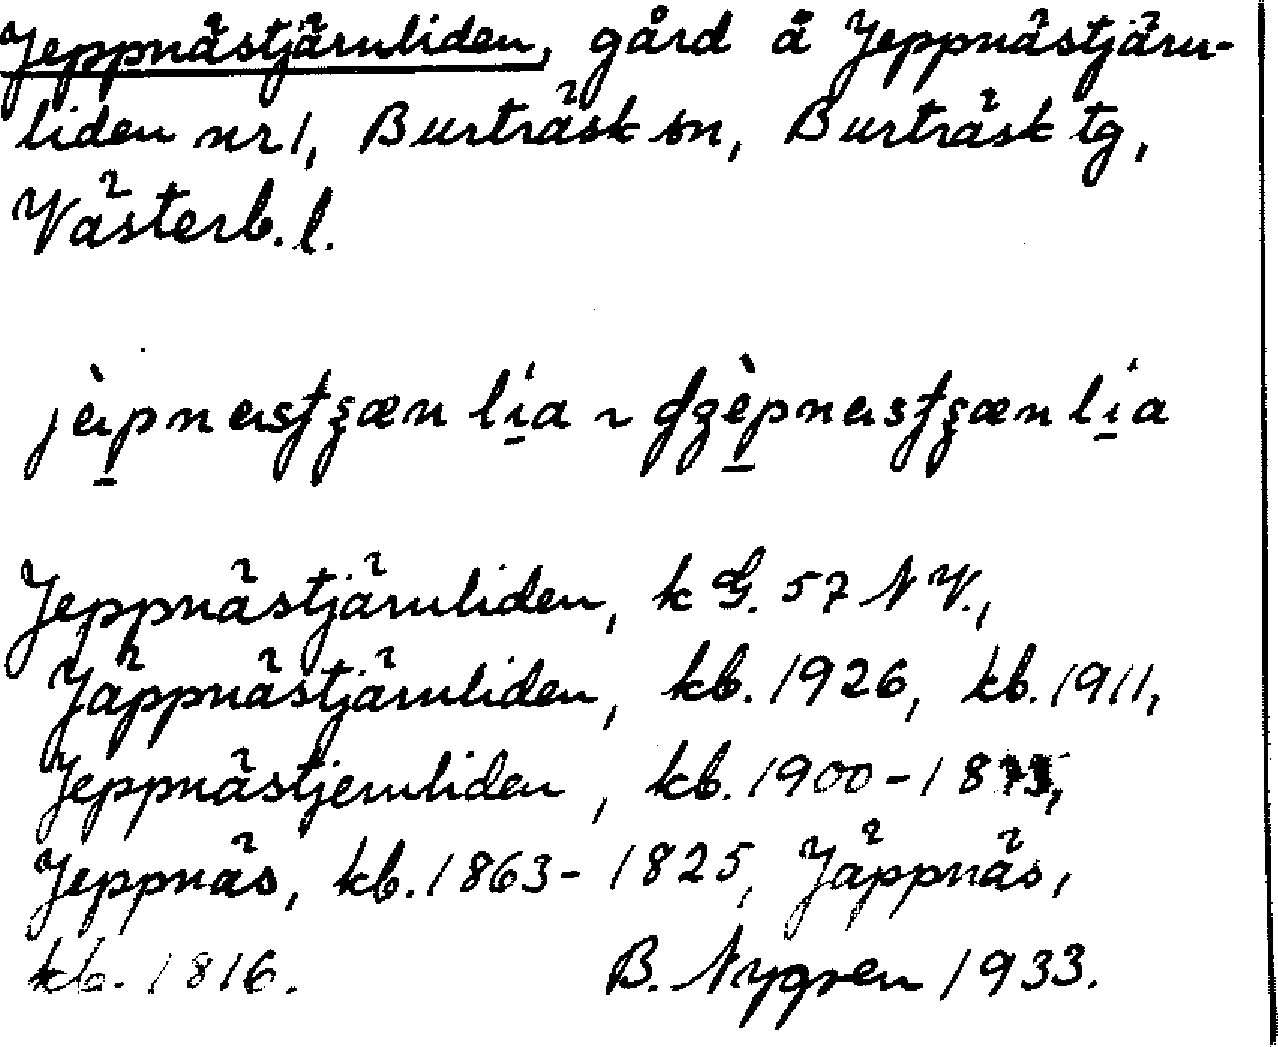 Jeppnästjärnliden, gård å Jeppnästjärn-
liden nr 1, Burträsk sn, Burträsk tg,
Västerb. l.
Jeppnästjärnliden, k G. 57 NV.,
Jäppnästjärnliden, kb. 1926, kb. 1911,
Jeppnästjernliden, kb. 1900-1875,
Jeppnäs, kb. 1863-1825, Jäppnäs,
kb. 1816. B. Nygren 1933.